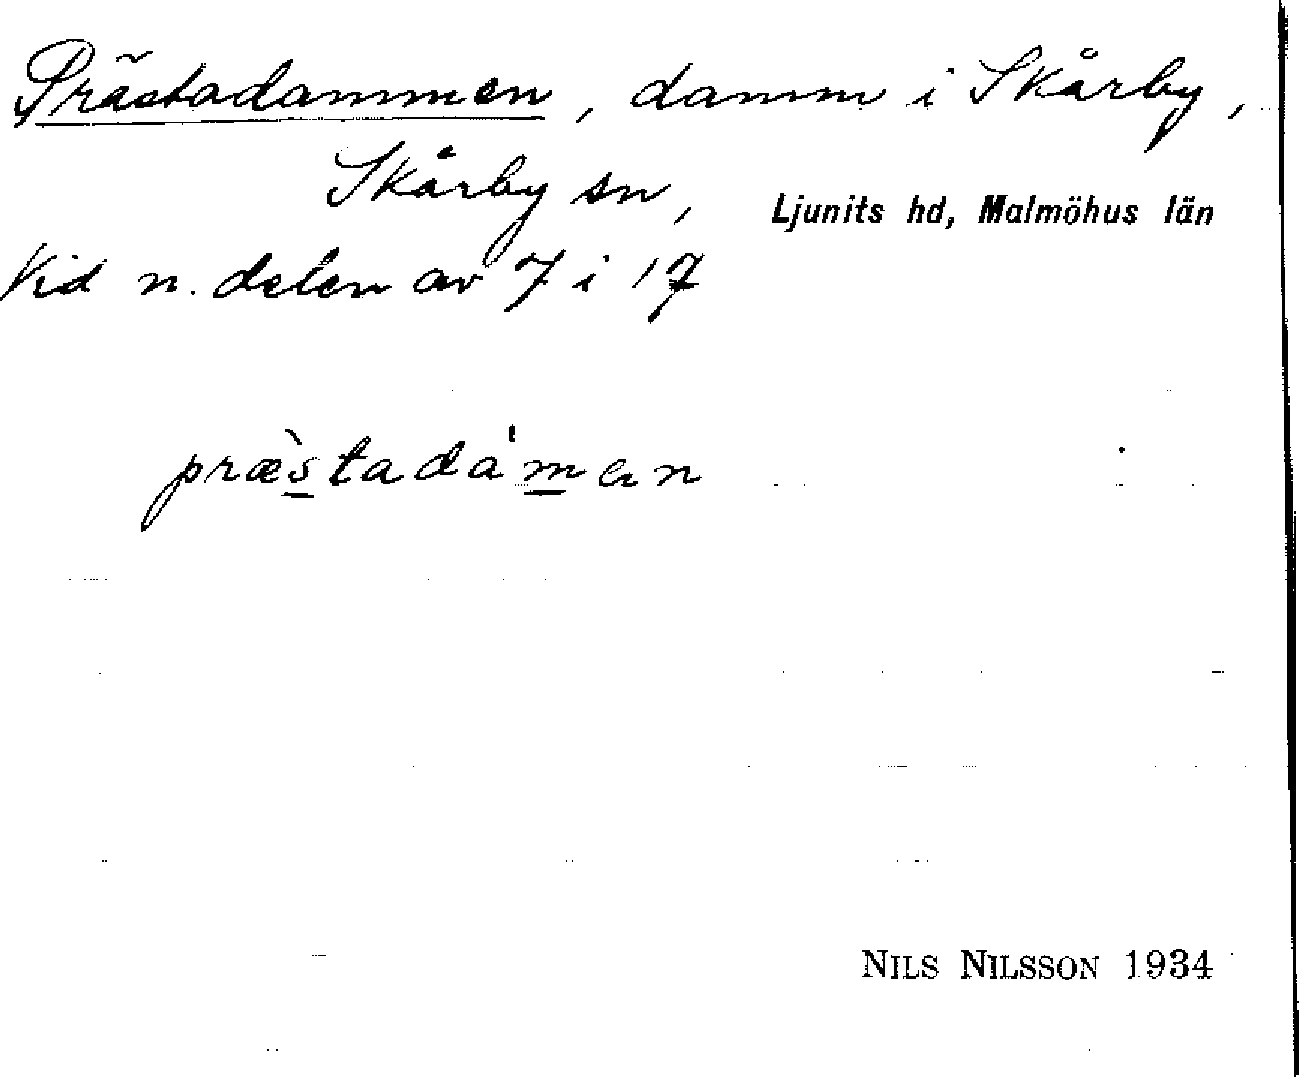 Prästadammen, damm i Skårby,
Skårby sn, Ljunits hd, Malmöhus län
Vid n. delen av 7 i 17
præ̀s̲tadá'm̲en
NILS NILSSON 1934